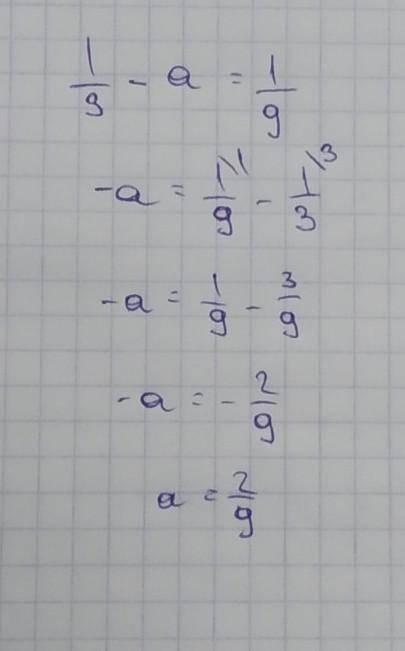 1/9 - a = 1/9
-a = 1\1/9 - 1\3/3
-a = 1/9 - 3/9
-a = - 2/9
a = 2/9